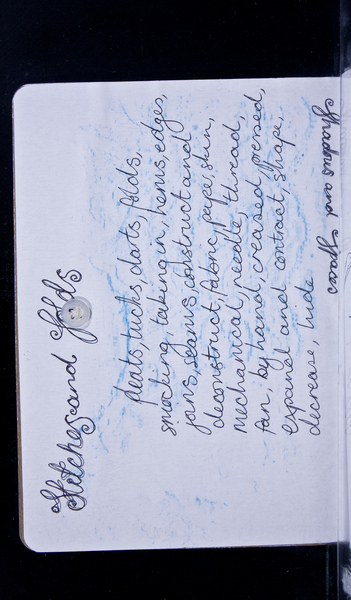 Stitches and Folds
pleats, tucks, darts, folds,
smocking, taking in, hems, edges,
joins, seams, construct and
deconstruct, fabric, paper, skin,
mechanical, needle, thread,
fan, by hand, creased, pressed,
expand and contract, shape,
decrease, hide
Shadows and Spaces